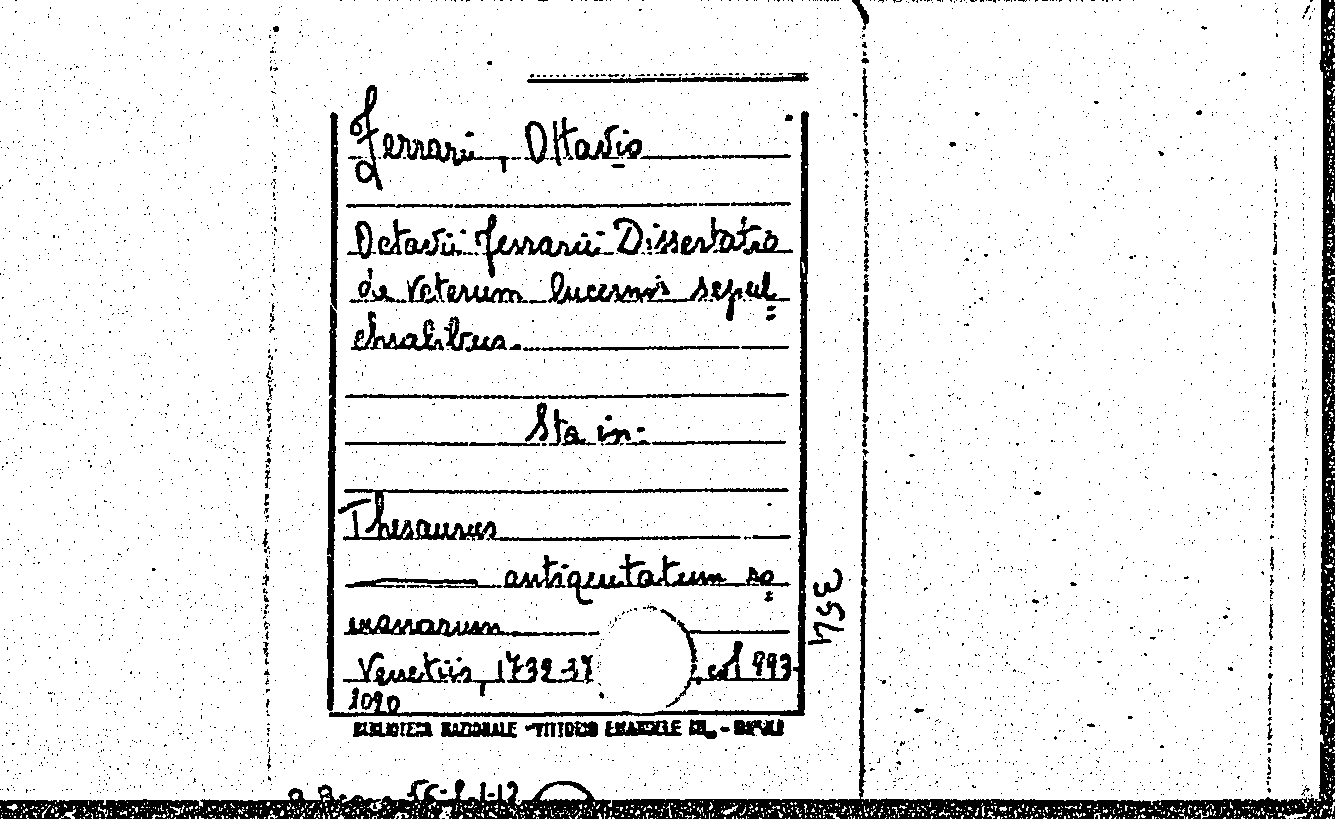 Ferrari, Ottavio
Octavii Ferrarii Dissertatio
de veterum lucernis sepul=
chralibus.
Sta in:
Thesaurus
antiquitatum ro=
manarum
Venetiis, 1732-37 col 993-
1090
3574
BIBLIOTECA NAZIONALE "VITTORIO EMANUELE III" - NAPOLI